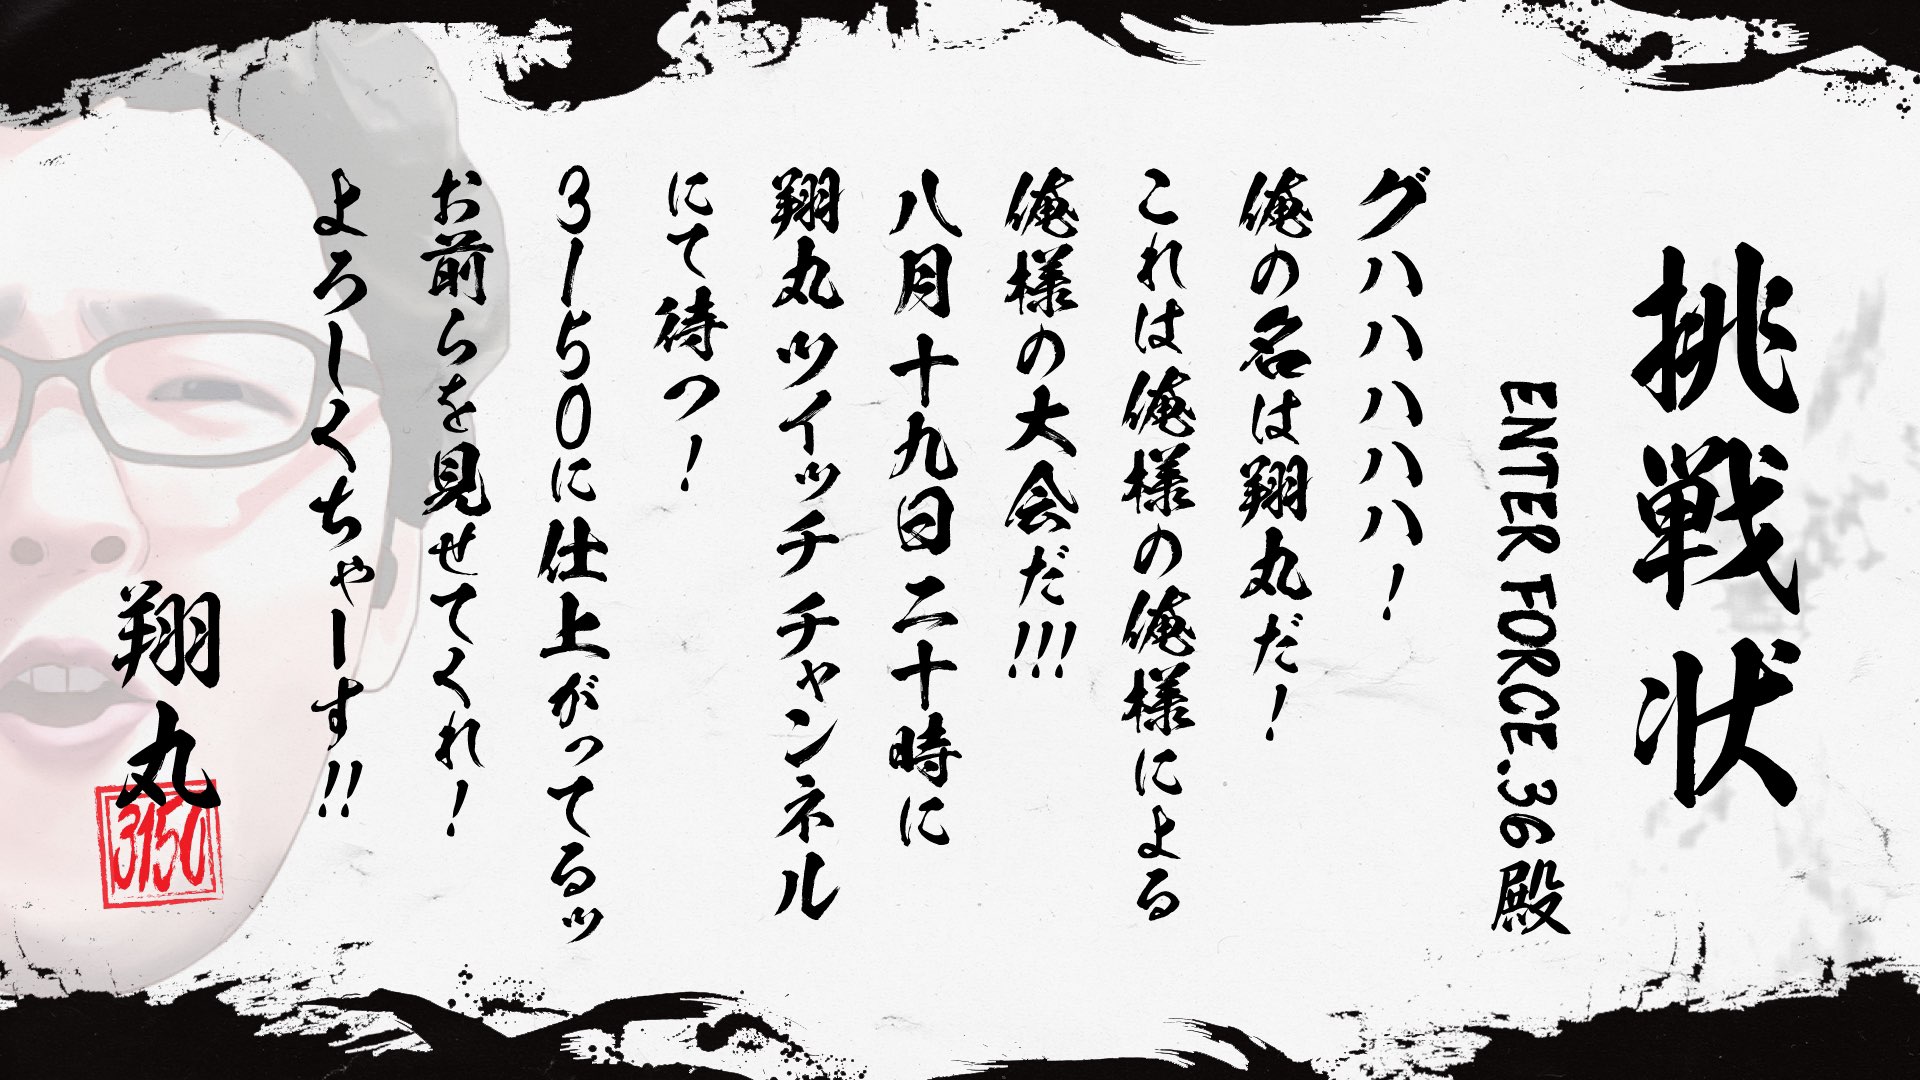 挑戦状
ENTER FORCE.36殿
グハハハハハ！
俺の名は翔丸だ！
これは俺様の俺様による
俺様の大会だ!!!
八月十九日二十時に
翔丸ツイッチチャンネル
にて待つ！
3150に仕上がってるッ
お前らを見せてくれ！
よろしくちゃーす!!
翔丸
3150